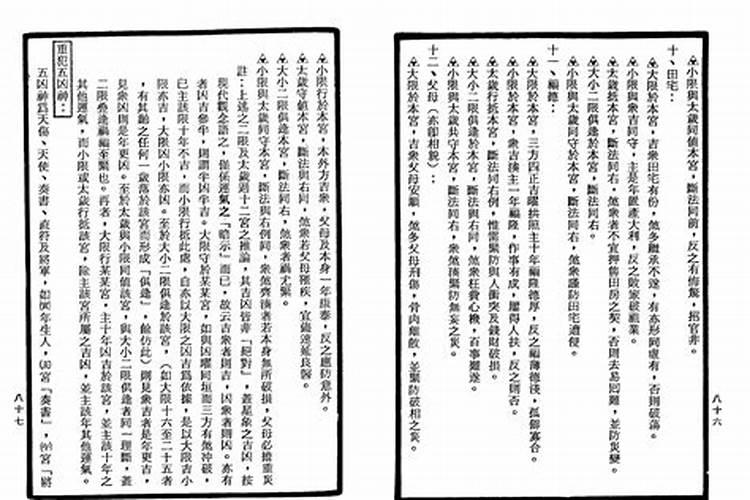 ◬小限與太歲同值本宮，斷法同前，反之有侮駡，招官非。
十、田宅：
◬大限於本宮，吉衆田宅有份，煞多繼承不遂，有亦形同虛有，否則破蕩。
◬小限與衆吉同守，主是年置產大利，反之敗家破職業。
◬太歲抵本宮，斷法同右，煞衆者不宜押當田房之契，否則去易回難，並防災變。
◬大小二限俱逢本宮，斷法同右。
◬小限與太歲同守於本宮，斷法同右，煞衆謹防田宅遭侵。
十一、福德：
◬大限於本宮，三方四正吉曜拱照主十年福隆德厚，反之福薄德淺，孤鄰寡合。
◬小限於本宮，衆吉湊主一年福隆，作事有成，屢得人扶，反之則否。
◬太歲行抵本宮，斷法同右例，惟需緊防與人衝突及錢財破損。
◬大小二限俱逢於本宮，斷法與右同，煞衆枉費心機，百事難遂。
◬小限與太歲共守本宮，斷法同右，衆煞湊緊防無妄之災。
十二、父母（亦卽相貌）：
◬大限於本宮，吉衆父母安順，煞多父母刑傷，骨肉離散，並緊防破相之災。
八十六
◬小限行於本宮，本外方吉衆，父母及本身一年康泰，反之應防意外。
◬太歲守値本宮，斷法與右同，煞衆若父母罹疾，宜備速延良醫。
◬大小二限俱逢本宮，斷法同右，煞衆者禍尤緊。
◬小限與太歲同守本宮，斷法與右例同，衆煞齊湊者若本身無所破損，父母必擔重災
註：上述之二限及太歲過十二宮之推論，其吉凶皆非「絕對」，蓋星象之吉凶，按
現代觀念語之，僅係運氣之「暗示」而已，故云吉衆者則吉，凶衆者則凶。亦有
者凶吉參半，則謂半凶半吉。大限守於某某宮，如與凶曜同垣而三方有煞冲破，
已主該限十年不吉，而小限行抵此處，自亦以大限之凶吉爲依據，是以大限吉小
限亦吉，大限凶小限亦凶。至於大小二限俱逢於該宮，（如大限十六至二十五者
，有其齡之任何一歲落於該宮而形成「俱逢」，餘仿此）則見衆吉者是年更吉，
見衆凶則是年更凶。至於太歲與小限同値該宮，與大小二限俱逢者同一理斷，蓋
二限叠逢禍福至緊也。再者，大限行某某宮，主十年因吉於該宮，並主該十年之
其他運氣，而小限或太歲行抵該宮，除主該宮所屬之吉凶，並主該年其他運氣。
重犯五凶神：
五凶神爲天傷、天使、奏書、直符及將軍，如宮年生人，宮「奏書」，宮「將
八十七